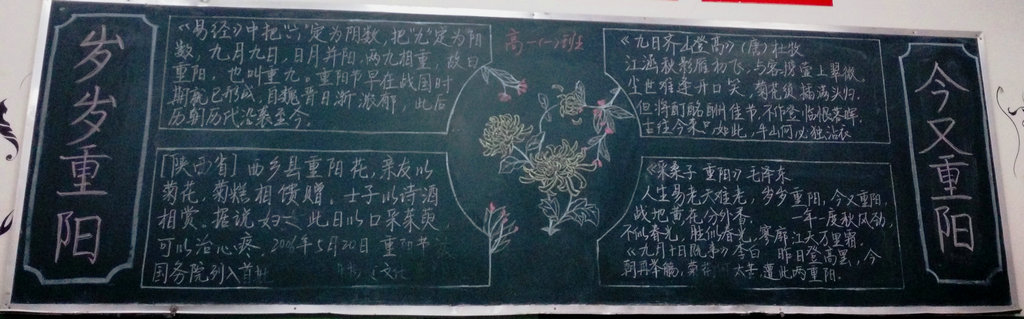 岁岁重阳
《易经》中把"六"定为阴数,把"九"定为阳
数,九月九日,日月并阳,两九相重,故曰
重阳,也叫重九。重阳节早在战国时
期就已形成,自魏晋日渐浓郁,此后
历朝历代沿袭至今.
[陕西省]西乡县重阳花,亲友以
菊花、菊糕相馈赠。士子以诗酒
相赏。据说妇 此日以口采茱萸,
可以治心疼。2006年5月20日重阳节
国务院列入首
高一(二)班
《九日齐山登高》(唐)杜牧
江涵秋影雁初飞,与客携壶上翠微,
尘世难逢开口笑,菊花须插满头归.
但将酩酊酬佳节,不作登临恨落晖.
古往今来只如此,牛山何必独沾衣
《采桑子 重阳》毛泽东
人生易老天难老,岁岁重阳,今又重阳,
战地黄花分外香. 一年一度秋风劲,
不似春光,胜似春光,寥廓江天万里霜.
《九月十日即事》李白 昨日登高罢,今
朝再举觞,菊花何太苦,遭此两重阳.
今又重阳